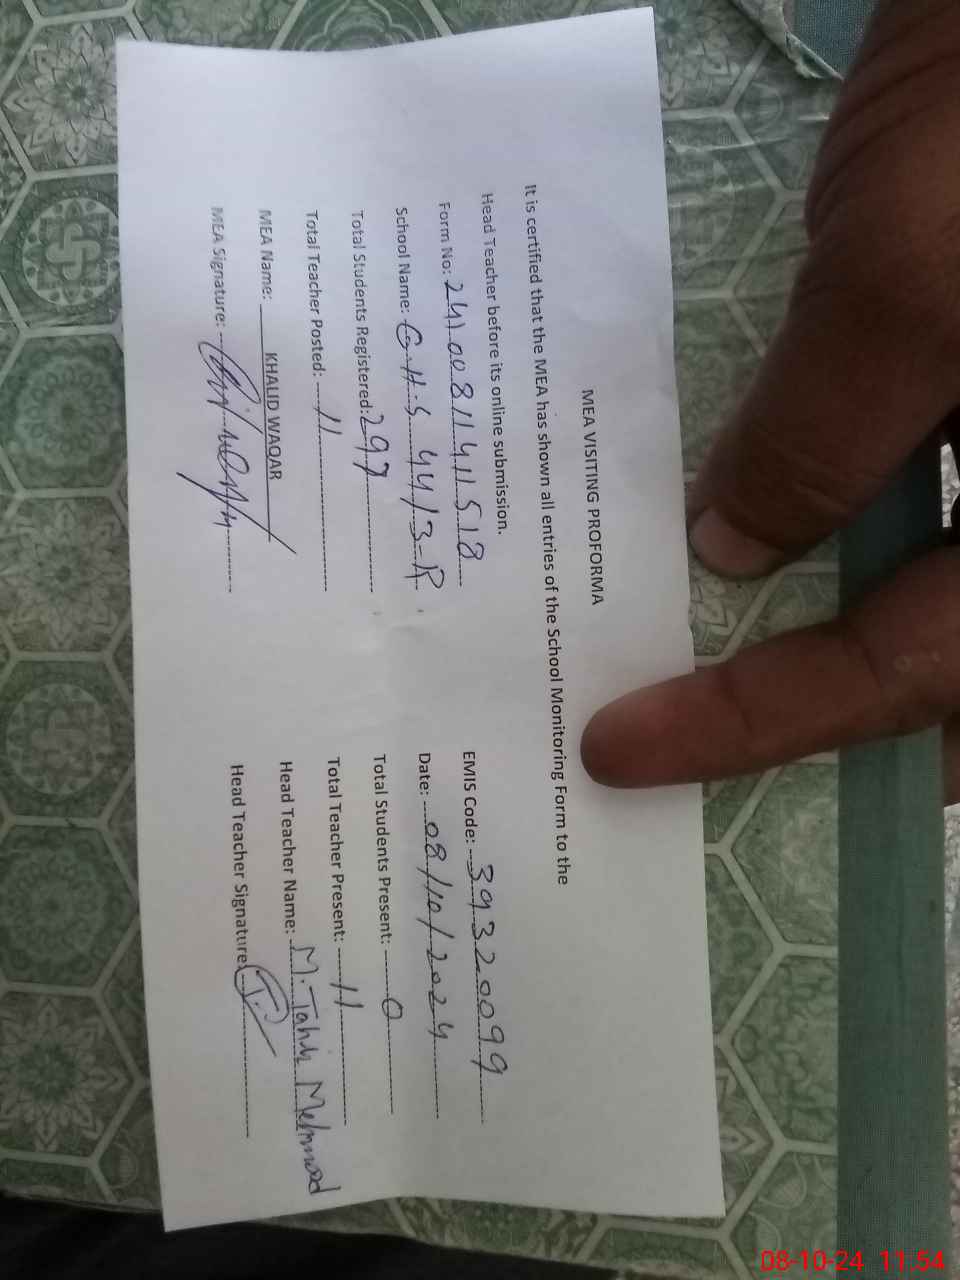 MEA VISITING PROFORMA
It is certified that the MEA has shown all entries of the School Monitoring Form to the
Head Teacher before its online submission.
Form No: 24100811411518 EMIS Code: 39320099
School Name: G.H.S 44/3-R Date: 08/10/2024
Total Students Registered: 297 Total Students Present: 0
Total Teacher Posted: 11 Total Teacher Present: 11
MEA Name: KHALID WAQAR Head Teacher Name: M. Tahir Mehmood
MEA Signature: Head Teacher Signature:
08-10-24 11:54